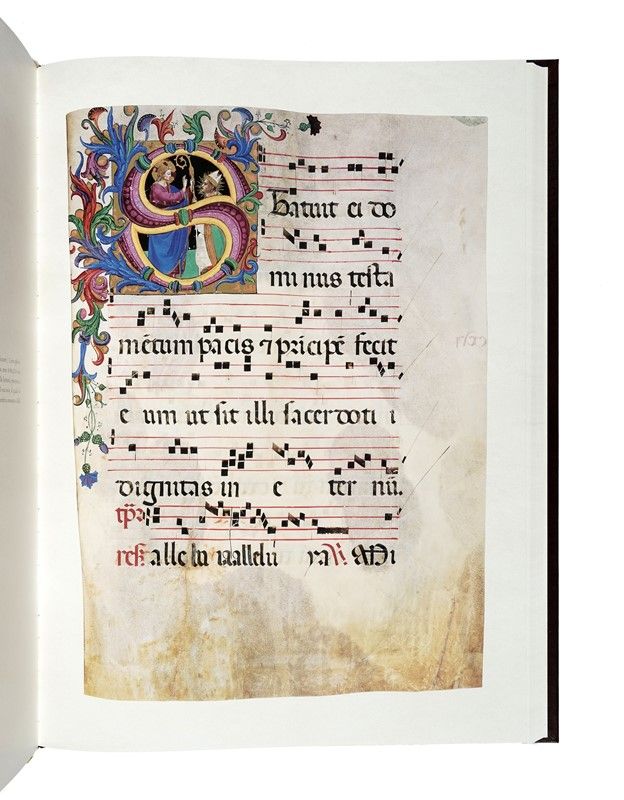 S tatuit ei do
mi nus testa
mētum pacis ⁊ pricipē fecit
e um ut sit illi sacerdoti i
dignitas in e ter nū.
tp̄r
res. alle lu ia allelu ya. V. Mi